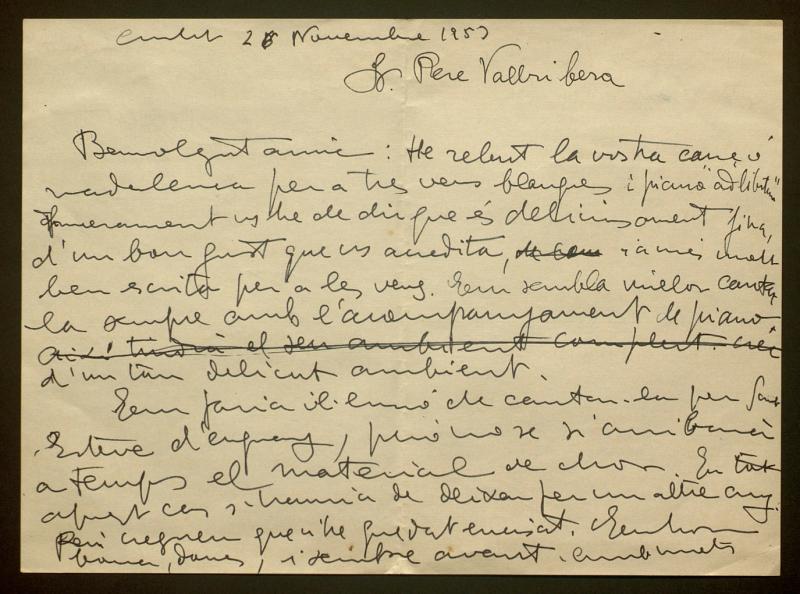 26 Novembre 1953
Sr. Pere Vallribera
Benvolgut amic: He rebut la vostra cançó
nadalenca per a tres veus blanques i piano "ad libitum"
us he de dir que és deliciosament fina,
d'un bon gust que us acredita, i a més molt
ben escrita per a les veus. Em sembla millor cantar-
la sempre amb l'acompanyament de piano
així tindrà el seu ambient complert.
d'un tan delicat ambient.
Em faria il·lusió de cantar-la per Sant
Esteve d'enguany, però no se si arribarà
a temps el material de chor. En tot
aquest cas s'hauria de deixar per un altre any.
Però cregueu que n'he quedat encisat.
bona, doncs, i sempre avant.